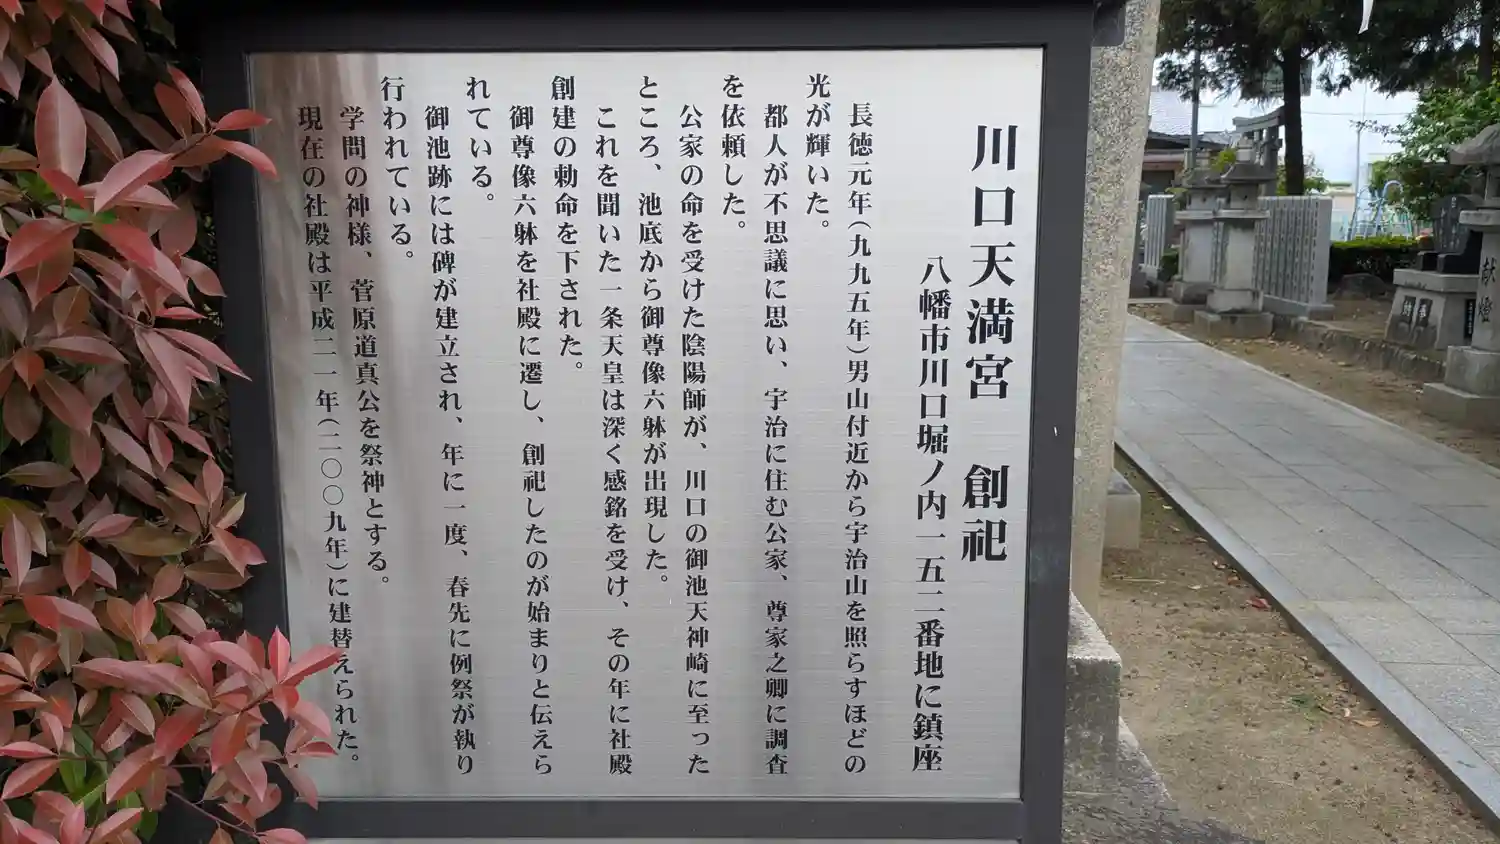 川口天満宮　創祀
八幡市川口堀ノ内一五二番地に鎮座
長徳元年(九九五年)男山付近から宇治山を照らすほどの
光が輝いた。
都人が不思議に思い、宇治に住む公家、尊家之卿に調査
を依頼した。
公家の命を受けた陰陽師が、川口の御池天神崎に至った
ところ、池底から御尊像六躰が出現した。
これを聞いた一条天皇は深く感銘を受け、その年に社殿
創建の勅命を下された。
御尊像六躰を社殿に遷し、創祀したのが始まりと伝えら
れている。
御池跡には碑が建立され、年に一度、春先に例祭が執り
行われている。
学問の神様、菅原道真公を祭神とする。
現在の社殿は平成二一年(二〇〇九年)に建替えられた。
献燈